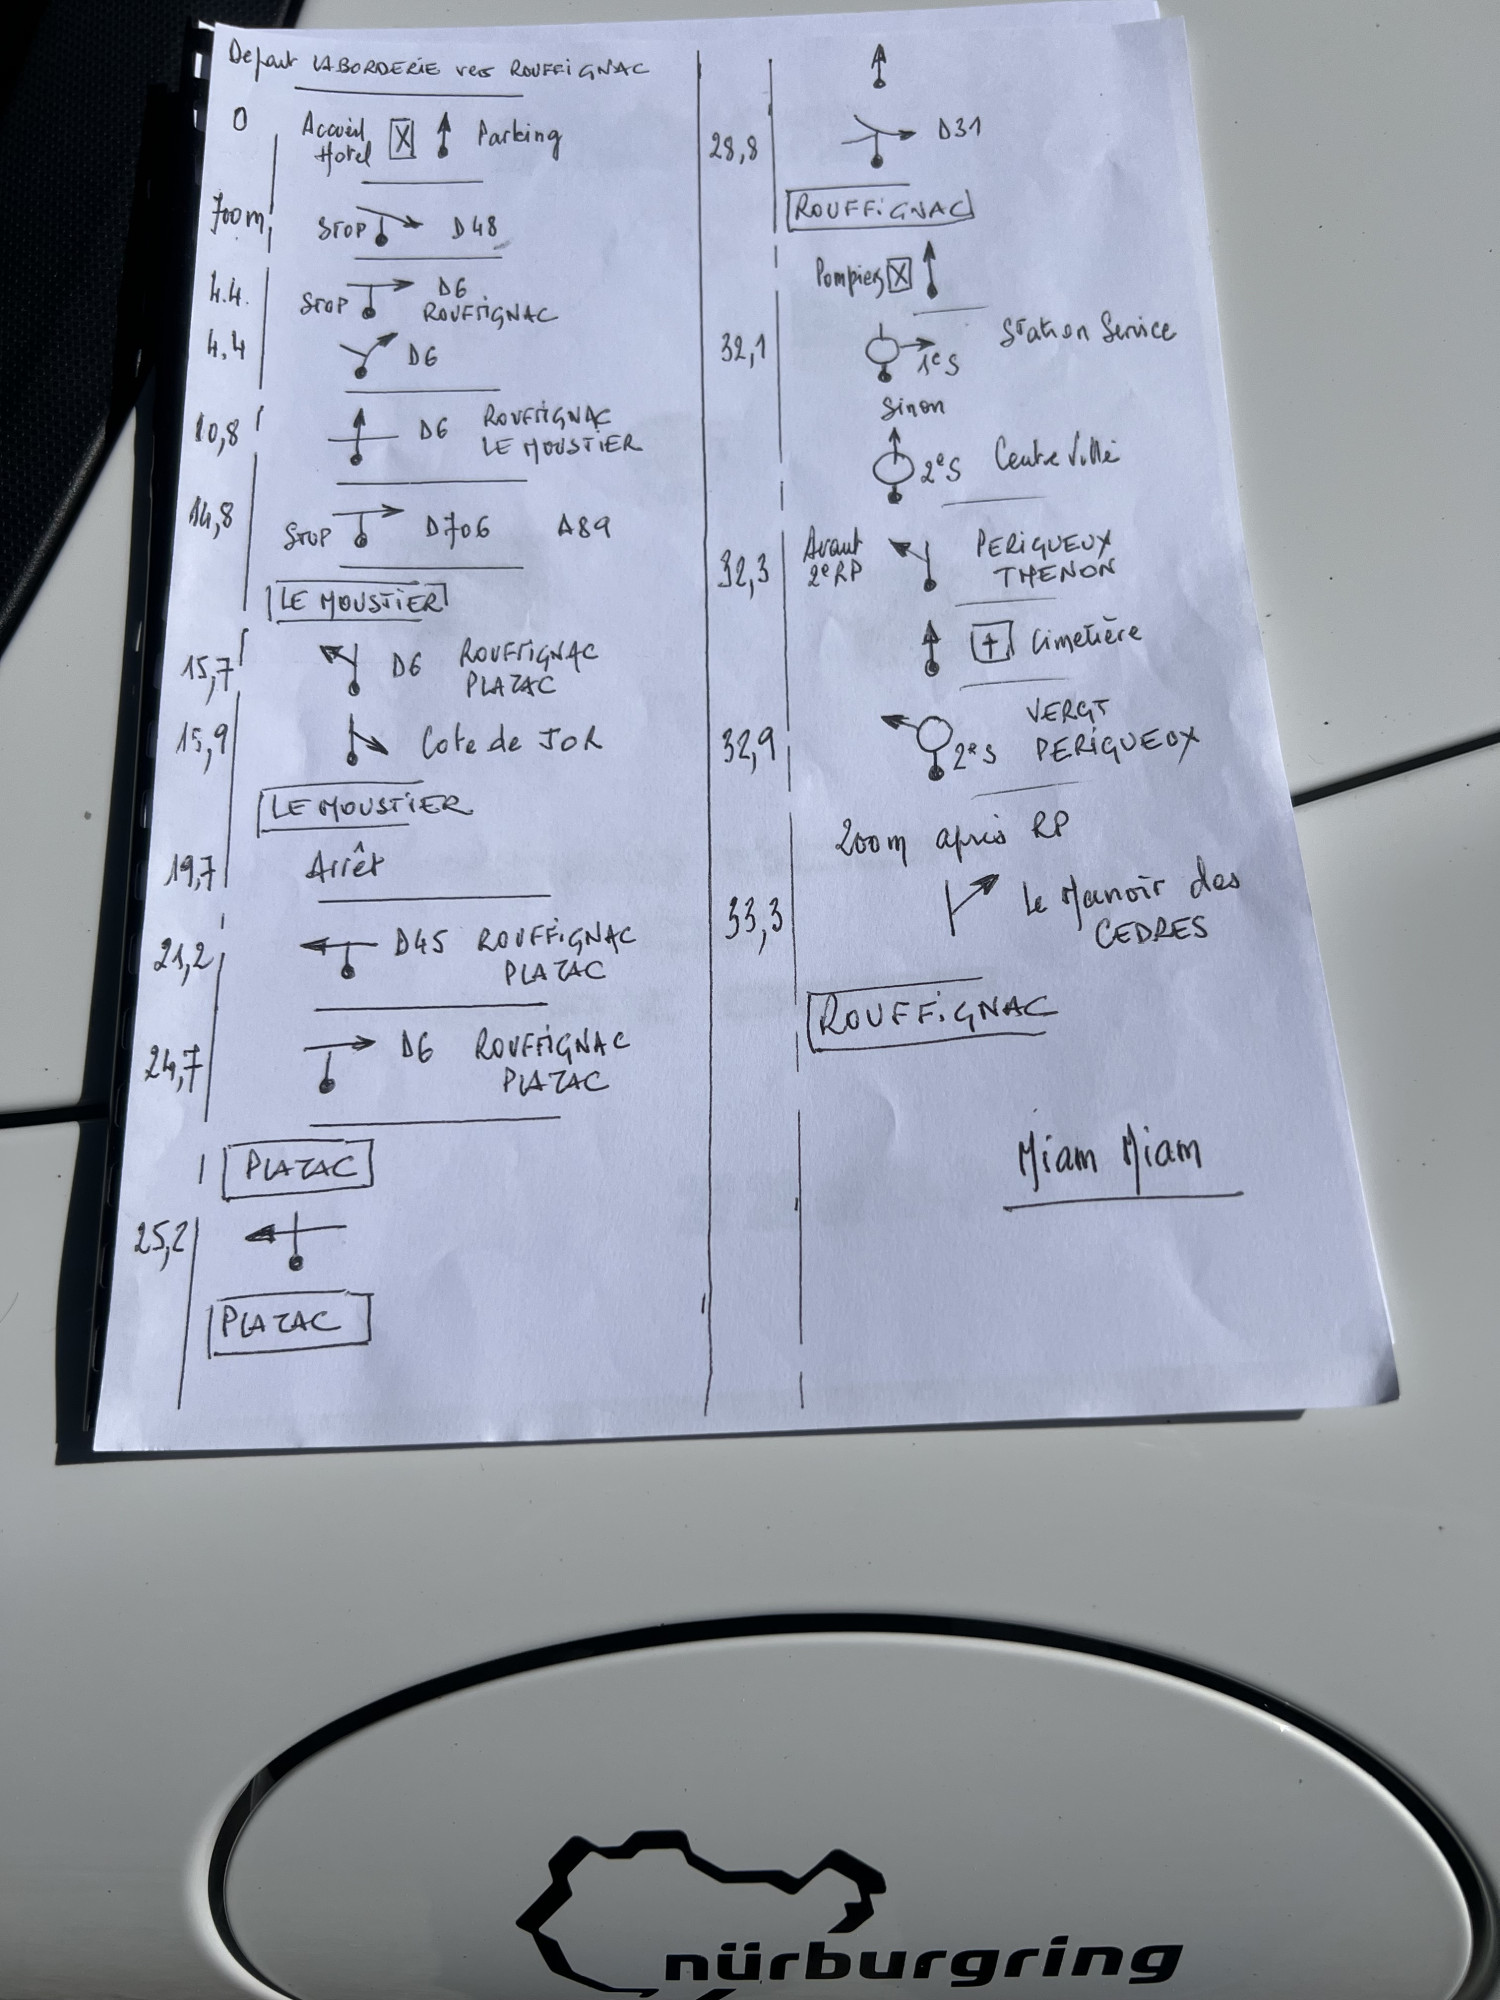 Départ LABORDERIE vers ROUFFIGNAC
0 Accueil Hotel X Parking
700m STOP D48
4.4. STOP D6 ROUFFIGNAC
4,4 D6
10,8 D6 ROUFFIGNAC
LE MOUSTIER
14,8 STOP D706 A89
LE MOUSTIER
15,7 D6 ROUFFIGNAC
PLAZAC
15,9 Cote de JOR
LE MOUSTIER
19,7 Arrêt
21,2 D45 ROUFFIGNAC
PLAZAC
24,7 D6 ROUFFIGNAC
PLAZAC
PLAZAC
25,2
PLAZAC
28,8 D31
ROUFFIGNAC
Pompiers X
32,1 1e S Station Service
Sinon
2e S Centre Ville
32,3 Avant 2e RP PERIGUEUX
THENON
+ Cimetière
32,9 2e S VERGT
PERIGUEUX
200m après RP
33,3 Le Manoir des
CEDRES
ROUFFIGNAC
Miam Miam
nürburgring